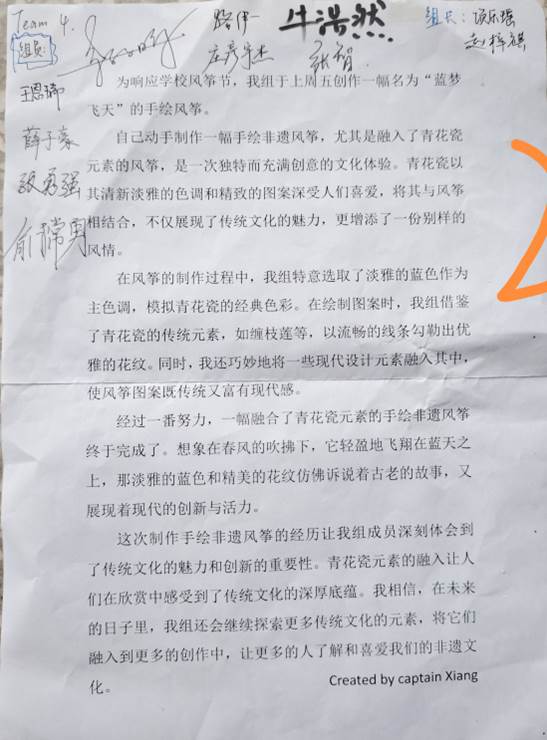 Team 4.
组员:
路伊一
牛浩然
组长: 项乐瑶
赵梓祺
庄彦杰
张智
王恩瑞
薛子豪
张勇强
为响应学校风筝节，我组于上周五创作一幅名为“蓝梦
飞天”的手绘风筝。
自己动手制作一幅手绘非遗风筝，尤其是融入了青花瓷
元素的风筝，是一次独特而充满创意的文化体验。青花瓷以
其清新淡雅的色调和精致的图案深受人们喜爱，将其与风筝
相结合，不仅展现了传统文化的魅力，更增添了一份别样的
风情。
在风筝的制作过程中，我组特意选取了淡雅的蓝色作为
主色调，模拟青花瓷的经典色彩。在绘制图案时，我组借鉴
了青花瓷的传统元素，如缠枝莲等，以流畅的线条勾勒出优
雅的花纹。同时，我还巧妙地将一些现代设计元素融入其中，
使风筝图案既传统又富有现代感。
经过一番努力，一幅融合了青花瓷元素的手绘非遗风筝
终于完成了。想象在春风的吹拂下，它轻盈地飞翔在蓝天之
上，那淡雅的蓝色和精美的花纹仿佛诉说着古老的故事，又
展现着现代的创新与活力。
这次制作手绘非遗风筝的经历让我组成员深刻体会到
了传统文化的魅力和创新的重要性。青花瓷元素的融入让人
们在欣赏中感受到了传统文化的深厚底蕴。我相信，在未来
的日子里，我组还会继续探索更多传统文化的元素，将它们
融入到更多的创作中，让更多的人了解和喜爱我们的非遗文
化。
Created by captain Xiang